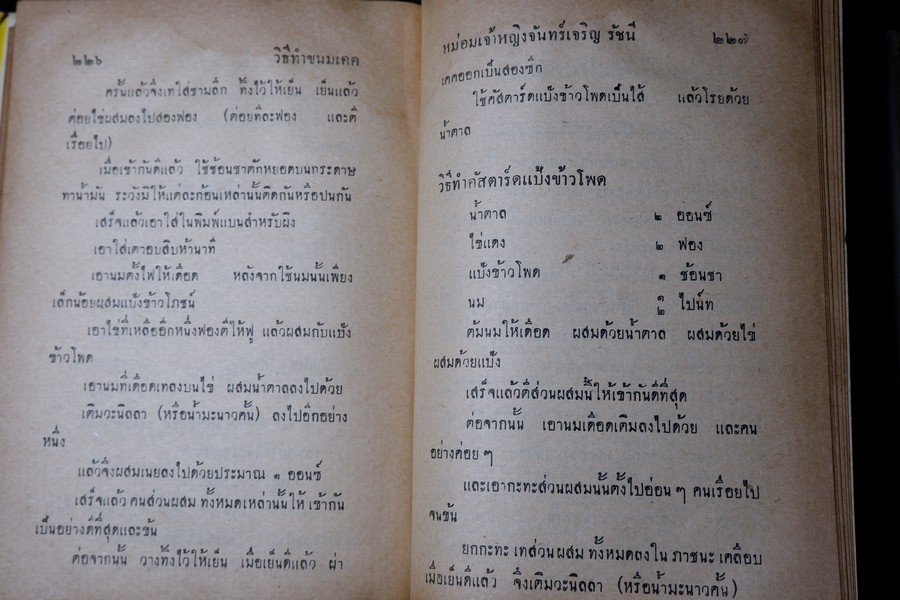 ๒๒๖ วิธีทำขนมเคค
ครั้นแล้วจึงเทใส่ชามลึก ทิ้งไว้ให้เย็น เย็นแล้ว
ค่อยใข่ผสมลงไปสองฟอง (ต่อยทีละฟอง และตี
เรื่อยไป)
เมื่อเข้ากันดีแล้ว ใช้ช้อนชาตักหยอดบนกระดาษ
ทาน้ำมัน ระวังมิให้แต่ละก้อนเหล่านั้นติดกันหรือปนกัน
เสร็จแล้วเอาใส่ในพิมพ์แบนสำหรับผิง
เอาใส่เตาอบสิบห้านาที
เอานมตั้งไฟให้เดือด หลังจากใช้นมนั้นเพียง
เล็กน้อยผสมแป้งข้าวโภชน์
เอาไข่ที่เหลืออีกหนึ่งฟองตีให้ฟู แล้วผสมกับแป้ง
ข้าวโพด
เอานมที่เดือดเทลงบนไข่ ผสมน้ำตาลลงไปด้วย
เติมวะนิลลา (หรือน้ำมะนาวคั้น) ลงไปอีกอย่าง
หนึ่ง
แล้วจึงผสมเนยลงไปด้วยประมาณ ๑ ออนซ์
เสร็จแล้ว คนส่วนผสม ทั้งหมดเหล่านั้นให้ เข้ากัน
เป็นอย่างดีที่สุดและข้น
ต่อจากนั้น วางทิ้งไว้ให้เย็น เมื่อเย็นดีแล้ว ผ่า
หม่อมเจ้าหญิงจันทร์เจริญ รัชนี ๒๒๗
เคคออกเป็นสองซีก
ใช้คัสตาร์ดแป้งข้าวโพดเป็นไส้ แล้วโรยด้วย
น้ำตาล
วิธีทำคัสตาร์ดแป้งข้าวโพด
น้ำตาล ๒ ออนซ์
ไข่แดง ๒ ฟอง
แป้งข้าวโพด ๑ ช้อนชา
นม ๑/๒ ไปน์ท
ต้มนมให้เดือด ผสมด้วยน้ำตาล ผสมด้วยไข่
ผสมด้วยแป้ง
เสร็จแล้วตีส่วนผสมนี้ให้เข้ากันดีที่สุด
ต่อจากนั้น เอานมเดือดเติมลงไปด้วย และคน
อย่างค่อย ๆ
และเอากะทะส่วนผสมนั้นตั้งไปอ่อน ๆ คนเรื่อยไป
จนข้น
ยกกะทะ เทส่วนผสม ทั้งหมดลงใน ภาชนะ เคลือบ
เมื่อเย็นดีแล้ว จึงเติมวะนิลลา (หรือน้ำมะนาวคั้น)